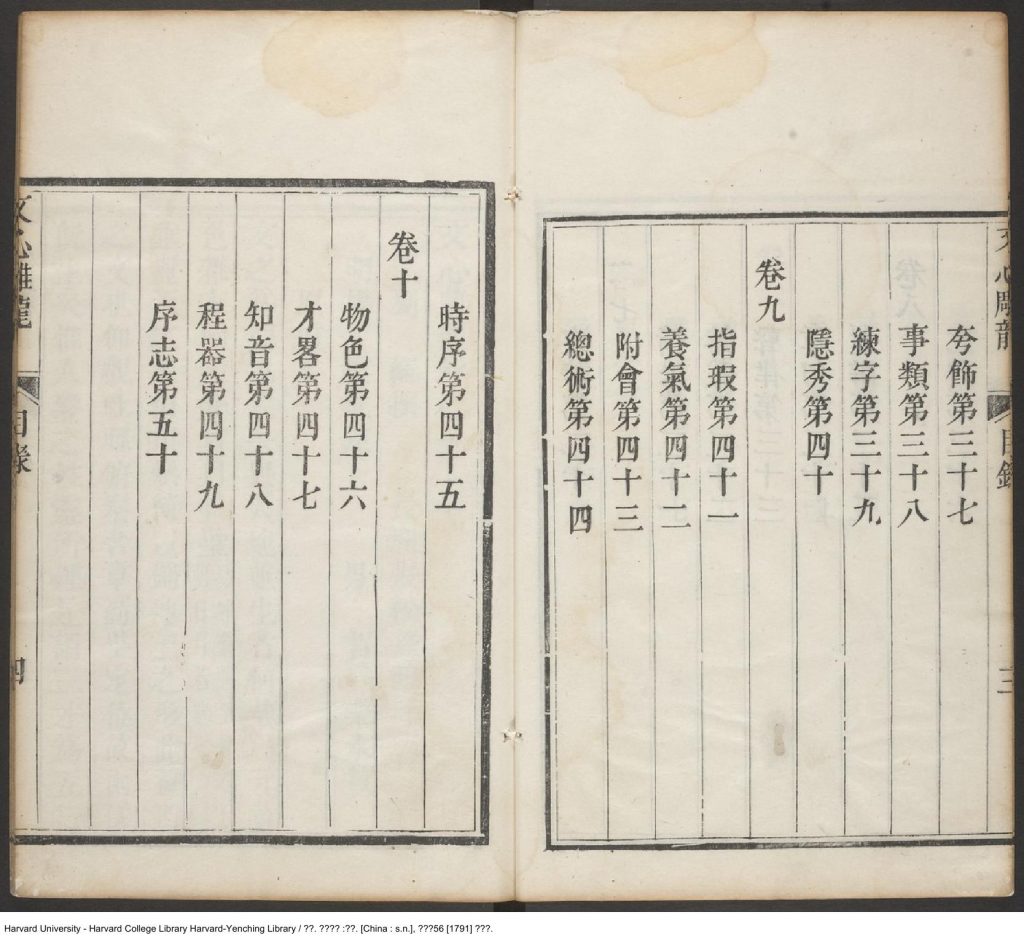 文心雕龍 目錄 三
夸飾第三十七
事類第三十八
練字第三十九
隱秀第四十
卷九
指瑕第四十一
養氣第四十二
附會第四十三
總術第四十四
時序第四十五
卷十
物色第四十六
才畧第四十七
知音第四十八
程器第四十九
序志第五十
文心雕龍 目錄 四
Harvard University - Harvard College Library Harvard-Yenching Library / ??. ???? :??. [China : s.n.], ???56 [1791] ???.